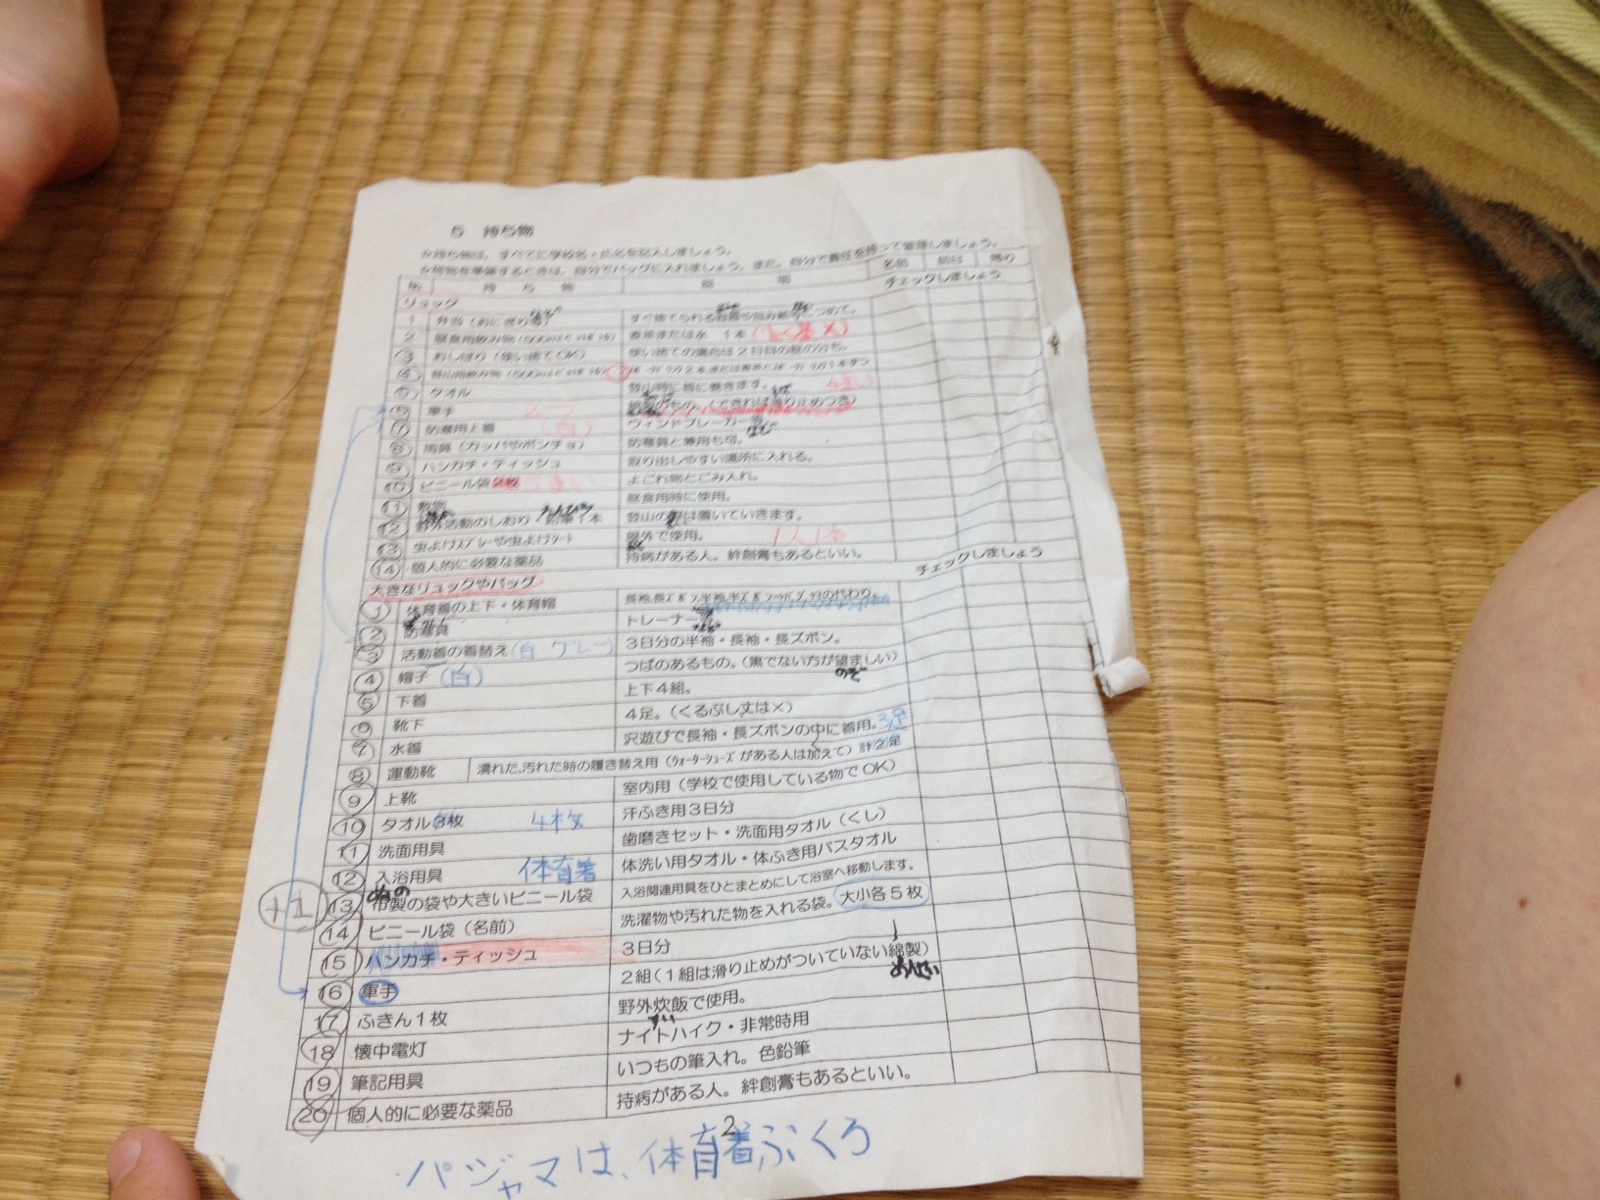 5 持ち物
☆持ち物は、すべてに学校名・氏名を記入しましょう。
☆荷物を準備するときは、自分でバッグに入れましょう。また、自分で責任を持って管理しましょう。
持ち物 説明 名前 前日 帰り
リュック チェックしましょう
1 弁当(おにぎり等)
2 昼食用飲み物 1本
3 おしぼり(使い捨てOK) 使い捨ての場合は2日目の昼の分も。
4 登山用飲み物
5 タオル 登山時に首に巻きます。
6 軍手 2つ 綿製のもの。(できれば滑り止めつき)
7 防寒用上着 ウィンドブレーカー等
8 雨具(カッパやポンチョ) 防寒具と兼用も可。
9 ハンカチ・ティッシュ 取り出しやすい場所に入れる。
10 ビニール袋 よごれ物とごみ入れ。
11 敷物 昼食用時に使用。
12 野外活動のしおり 鉛筆1本 えんぴつ 登山の際は置いていきます。
13 虫よけスプレーや虫よけシート 屋外で使用。 1人1本
14 個人的に必要な薬品 持病がある人。絆創膏もあるといい。
大きなリュックやバッグ チェックしましょう
1 体育着の上下・体育帽
2 防寒具 トレーナー等
3 活動着の着替え(白・グレー) 3日分の半袖・長袖・長ズボン。
4 帽子(白) つばのあるもの。(黒でない方が望ましい) のぞ
5 下着 上下4組。
6 靴下 4足。(くるぶし丈は×)
7 水着 沢遊びで長袖・長ズボンの中に着用。 3足
8 運動靴 濡れた,汚れた時の履き替え用(ウォーターシューズがある人は加えて)計2足
9 上靴 室内用(学校で使用している物でOK)
10 タオル3枚 4枚 汗ふき用3日分
11 洗面用具 歯磨きセット・洗面用タオル(くし)
12 入浴用具 体育着 体洗い用タオル・体ふき用バスタオル
+1 13 布製の袋や大きいビニール袋 ぬの 入浴関連用具をひとまとめにして浴室へ移動します。
14 ビニール袋(名前) 洗濯物や汚れた物を入れる袋。大小各5枚
15 ハンカチ・ティッシュ 3日分
16 軍手 2組(1組は滑り止めがついていない綿製) めんせい
17 ふきん1枚 野外炊飯で使用。 すい
18 懐中電灯 ナイトハイク・非常時用
19 筆記用具 いつもの筆入れ。色鉛筆
20 個人的に必要な薬品 持病がある人。絆創膏もあるといい。
2
パジャマは、体育着ぶくろ